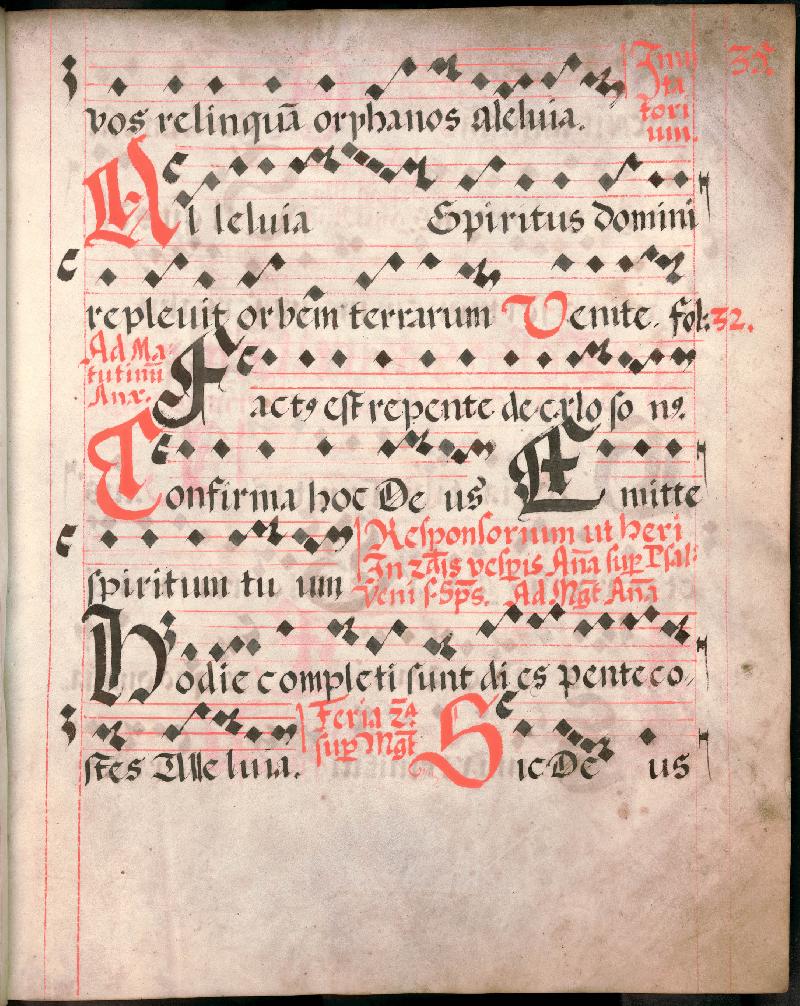 35.
vos relinquā orphanos aleluia.
Inui
ta
tori
um.
Al leluia Spiritus domini
repleuit orbem terrarum Venite. fol: 32.
Ad Ma-
tutinū
Anæ.
Fact9 est repente de cælo so n9.
Confirma hoc De us Emitte
spiritum tu um
Responsorium ut heri
In 2dis vesp̄is Anā sup Psal:
Veni s. Sp̄s. Ad Mḡt Anā
Hodie completi sunt di es penteco-
stes Alleluia.
Feria 2a
sup Mḡt
Sic De us